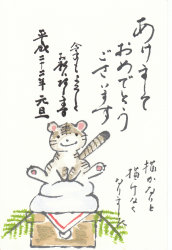 あけまして
おめでとう
ございます
今年もよろしく
お願い致します
平成二十二年 元旦
描かなりと
描けなく
なります